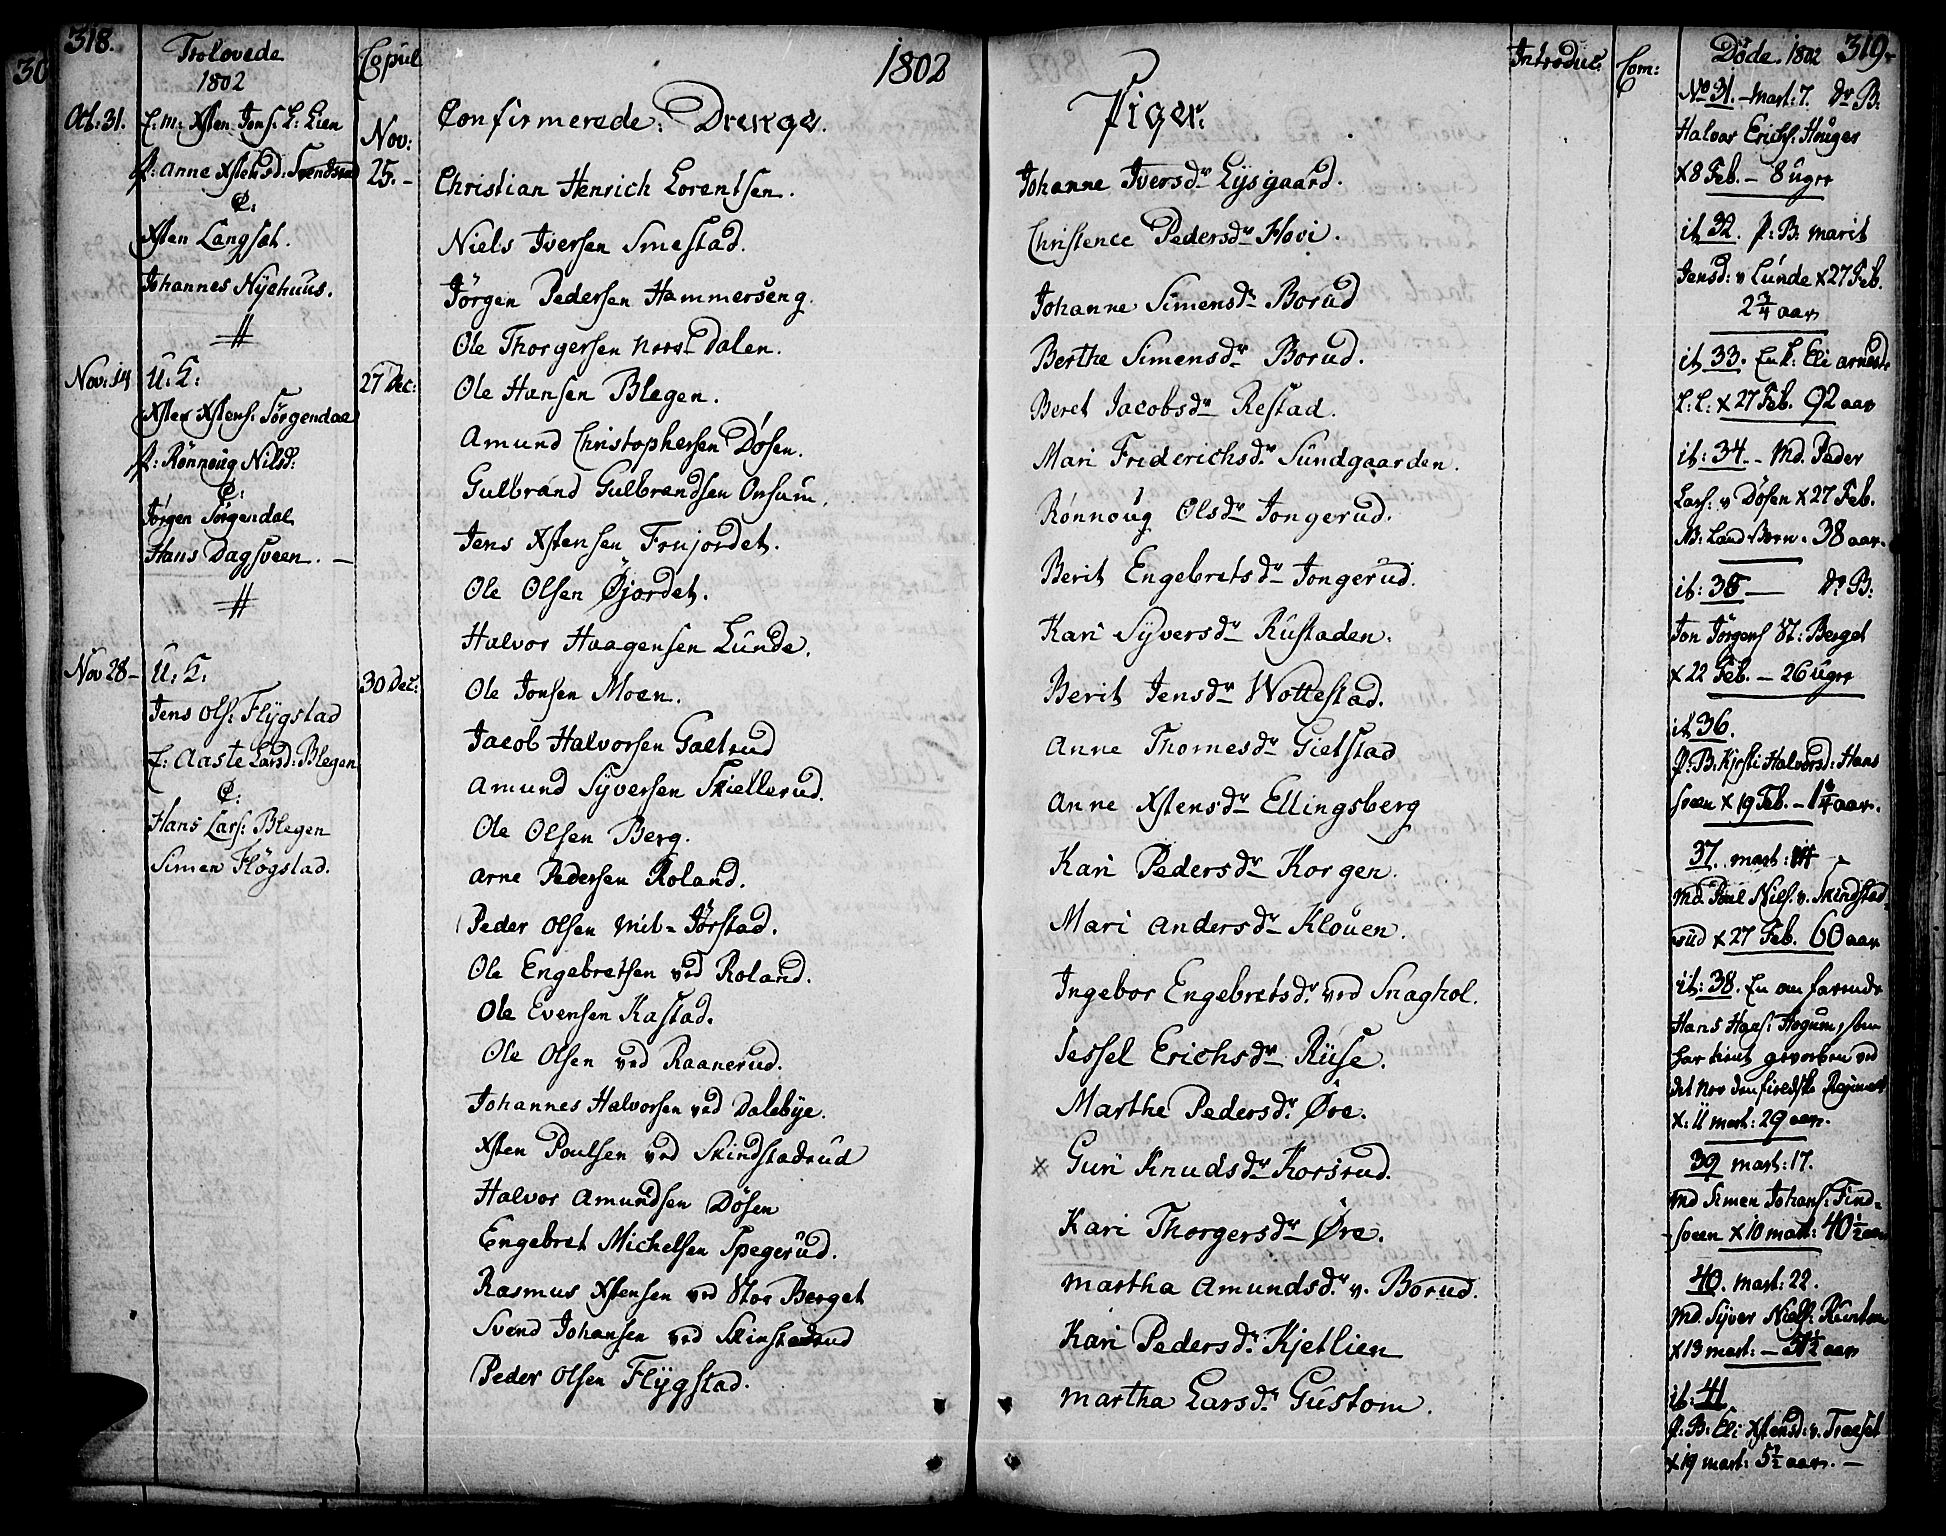 318.
Trolovede
1802
Copul
1802
Oct: 31.
E: M: Xsten Jons: L: Lien
P: Anne Xstensd: Svendsrud
C:
Xsten Langset.
Johannes Nyehuus.
Nov:
25. -
Nov: 14
U: K:
27 Dec:
Xsten Xstens: Sørgendal
P: Rönnoug Nilsd:
C:
Jörgen Sörgendal
Hans Dagsveen. -
Nov 28 -
U: K:
30 Dec:
Jens Ols: Flÿgstad
E: Aaste Larsd: Blegen
C:
Hans Lars: Blegen
Simen Flögstad.
Confirmerede: Drenge.
Christian Henrich Lorentsen.
Niels Iversen Smestad.
Jörgen Pedersen Hammerseng.
Ole Thorgersen Nord Dalen.
Ole Hansen Blegen.
Amund Christophersen Dösen.
Gulbrand Gulbrandsen Onsum.
Jens Xstensen Frujordet.
Ole Olsen Øjordet.
Halvor Haagensen Lunde.
Ole Jonsen Moen.
Jacob Halvorsen Galtrud
Amund Syversen Skiellerud.
Ole Olsen Berg.
Arne Pedersen Roland.
Peder Olsen Mit-Jörstad.
Ole Engebretsen ved Roland.
Ole Evensen Kastad.
Ole Olsen ved Raanerud.
Johannes Halvorsen ved Dalebye.
Xsten Poulsen ved Skindstadrud
Halvor Amundsen Dösen
Engebret Michelsen Spegerud.
Rasmus Xstensen ved Stor Berget
Svend Johansen ved Skinstadrud
Peder Olsen Flÿgstad.
Piger.
Johanne Iversdr Lysgaard.
Christence Pedersdr Hovi.
Johanne Simensdr Borud
Berthe Simensdr Borud.
Beret Jacobsdr Restad.
Mari Friderichsdr Sundgaarden.
Rönnoug Olsdr Jongerud.
Berit Engebretsdr Jongerud.
Kari Syversdr Rustaden.
Berit Jensdr Wottestad.
Anne Thomesdr Gielstad
Anne Xstensdr Ellingsberg
Kari Pedersdr Korgen.
Mari Andersdr Klouen.
Ingebor Engebretsdr ved Snaghol.
Sessel Erichsdr Rüse.
Marthe Pedersdr Øre.
x Guri Knudsdr Korsrud.
Kari Thorgersdr Øre.
Martha Amundsdr v. Borud.
Kari Pedersdr Kjetlien
Martha Larsdr Gustom.
Introduc:
Com:
Døde. 1802
319.
No 31. - Mart: 7. Dr B:
Halvor Erichs: Houger
x 8 Feb. - 8 uger
it 32. P: B: Marit
Jensd: v Lunde x 27 Feb.
2 3/4 aar
it 33. Enk: Eli Arnesdr
L: L: x 27 Feb. 92 aar
it: 34. - Md. Peder
Lars: v Dösen x 27 Feb.
38 aar.
it: 35 - Dr B:
Jon Jörgens St: Berget
x 22 Feb. - 26 uger
it 36.
P: B: Kjersti Halvorsd: Hans
sveen x 19 Feb. - aar.
37. Mart: 14
Md Poul Niels: v. Skindstad
rud x 27 Feb. 60 aar
it: 38. En om farende
Hans Hans:
har tient geworben ved
det Nordenfieldske Regiment
x: 11 Mart: 29 aar.
39 Mart: 17.
Md Simen Johans: Find-
sveen x 10 Mart: 40 1/2 aar
40. Mart: 22.
Md. Syver Niels:
x 13 Mart: - aar
it: 41
P: B: Eli Xstensd: v. Traeset
x 19 Mart: 5 1/2 aar. -